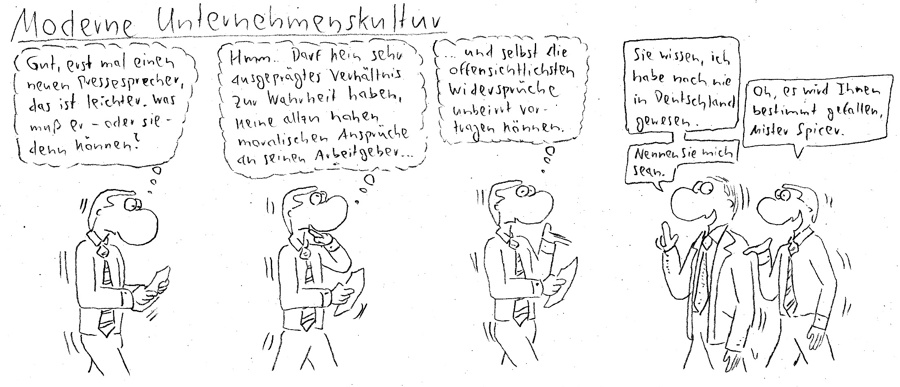 Moderne Unternehmenskultur
Gut, erst mal einen
neuen Pressesprecher,
das ist leichter. Was
muß er - oder sie -
denn können?
Hmm.. Darf kein sehr
ausgeprägtes Verhältnis
zur Wahrheit haben,
keine allzu hohen
moralischen Ansprüche
an seinen Arbeitgeber...
... und selbst die
offensichtlichsten
Widersprüche
unbeirrt vor-
tragen können.
Sie wissen, ich
habe noch nie
in Deutschland
gewesen.
Nennen Sie mich
Sean.
Oh, es wird Ihnen
bestimmt gefallen,
Mister Spicer.